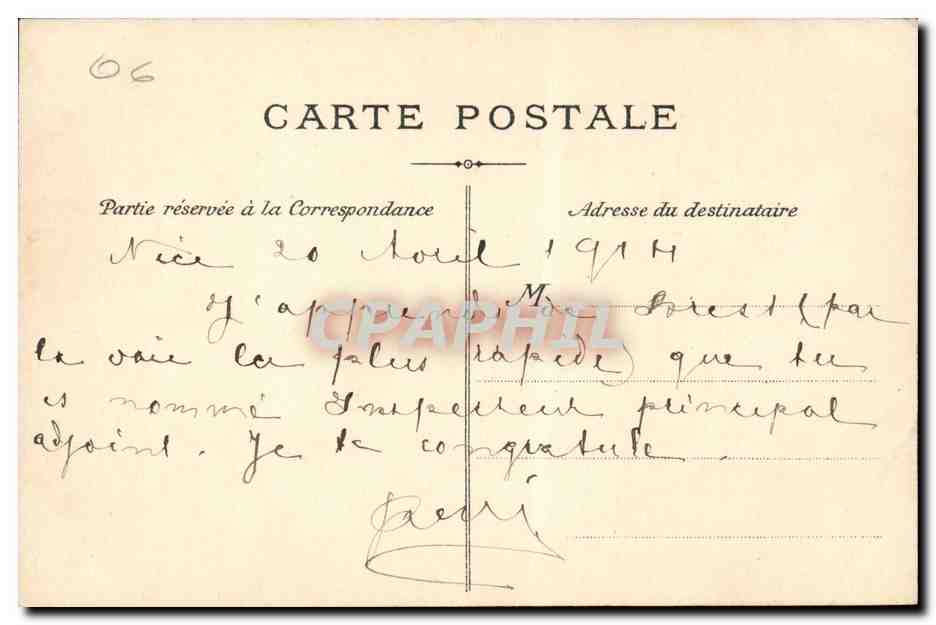 06
CARTE POSTALE
Partie réservée à la Correspondance
Adresse du destinataire
Nice 20 Avril 1914
M
J'apprends de Brest (par
la voie la plus rapide) que tu
es nommé Inspecteur principal
adjoint. Je te congratule.
CPAPHIL